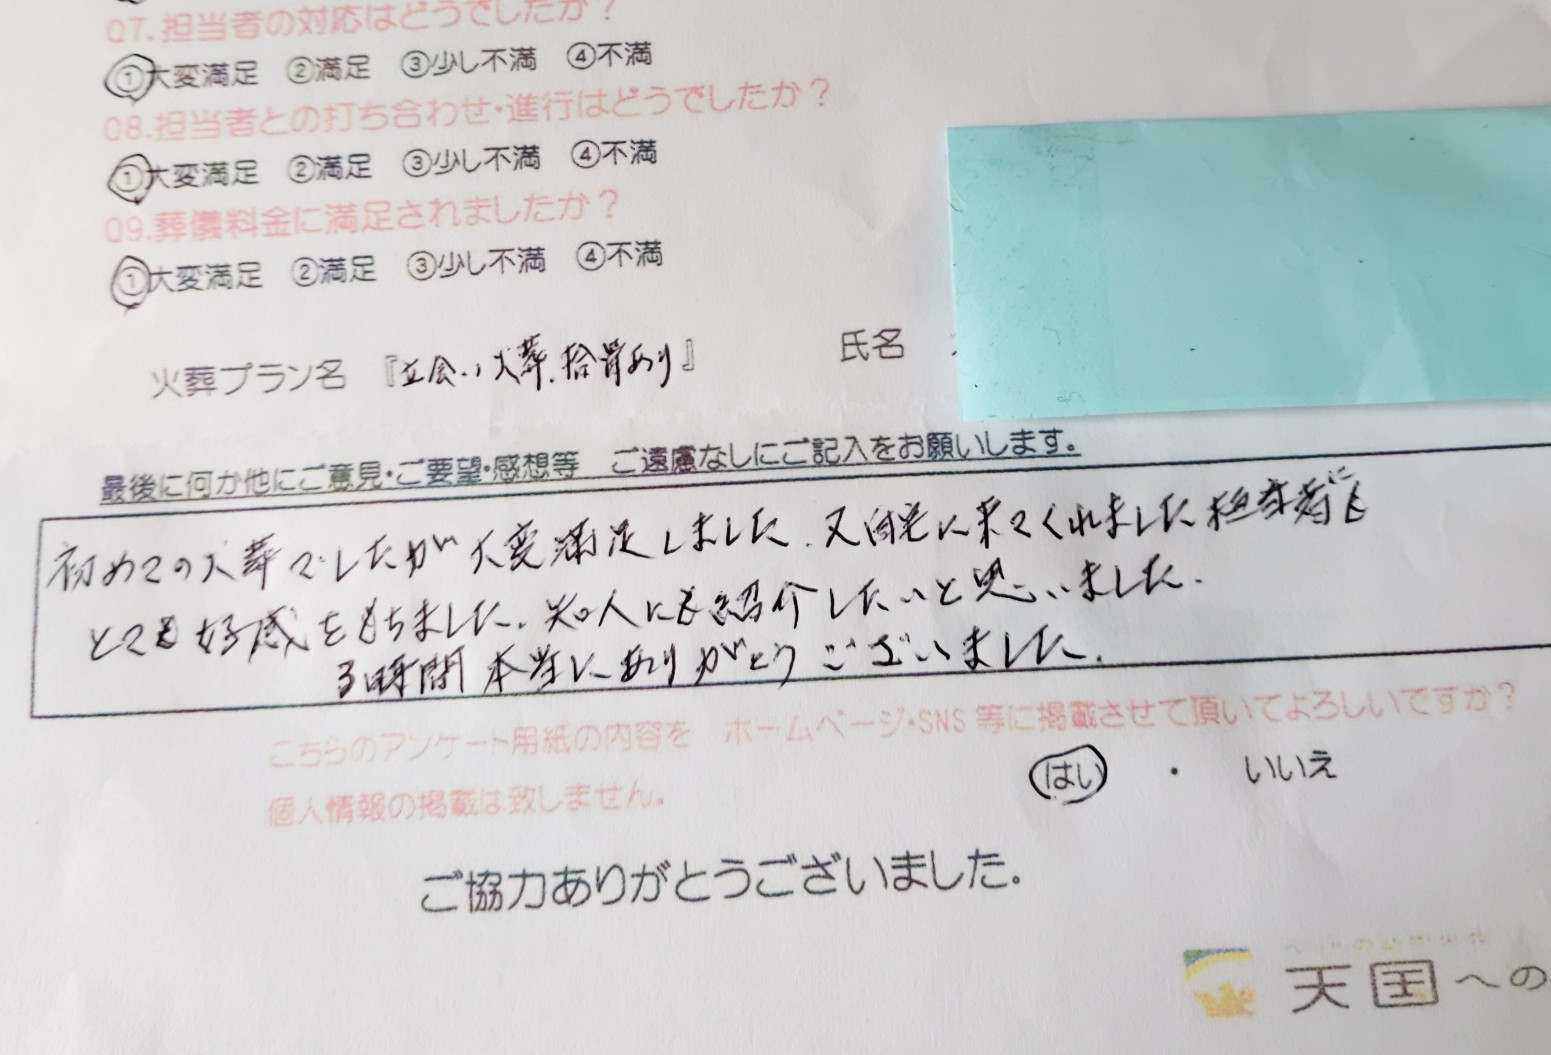 Q7.担当者の対応はどうでしたか?
①大変満足 ②満足 ③少し不満 ④不満
Q8.担当者との打ち合わせ・進行はどうでしたか?
①大変満足 ②満足 ③少し不満 ④不満
Q9.葬儀料金に満足されましたか?
①大変満足 ②満足 ③少し不満 ④不満
火葬プラン名 『立会い火葬.拾骨あり』 氏名
最後に何か他にご意見・ご要望・感想等 ご遠慮なしにご記入をお願いします。
初めての火葬でしたが大変満足しました.又自宅に来てくれました担当者にも
とても好感をもちました.知人にも紹介したいと思いました.
3時間本当にありがとうございました.
こちらのアンケート用紙の内容を ホームページ・SNS等に掲載させて頂いてよろしいですか?
個人情報の掲載は致しません。
はい ・ いいえ
ご協力ありがとうございました。
天国への